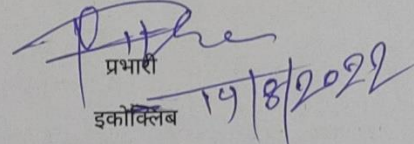 प्रभारी
इकोक्लिब 14/8/2022